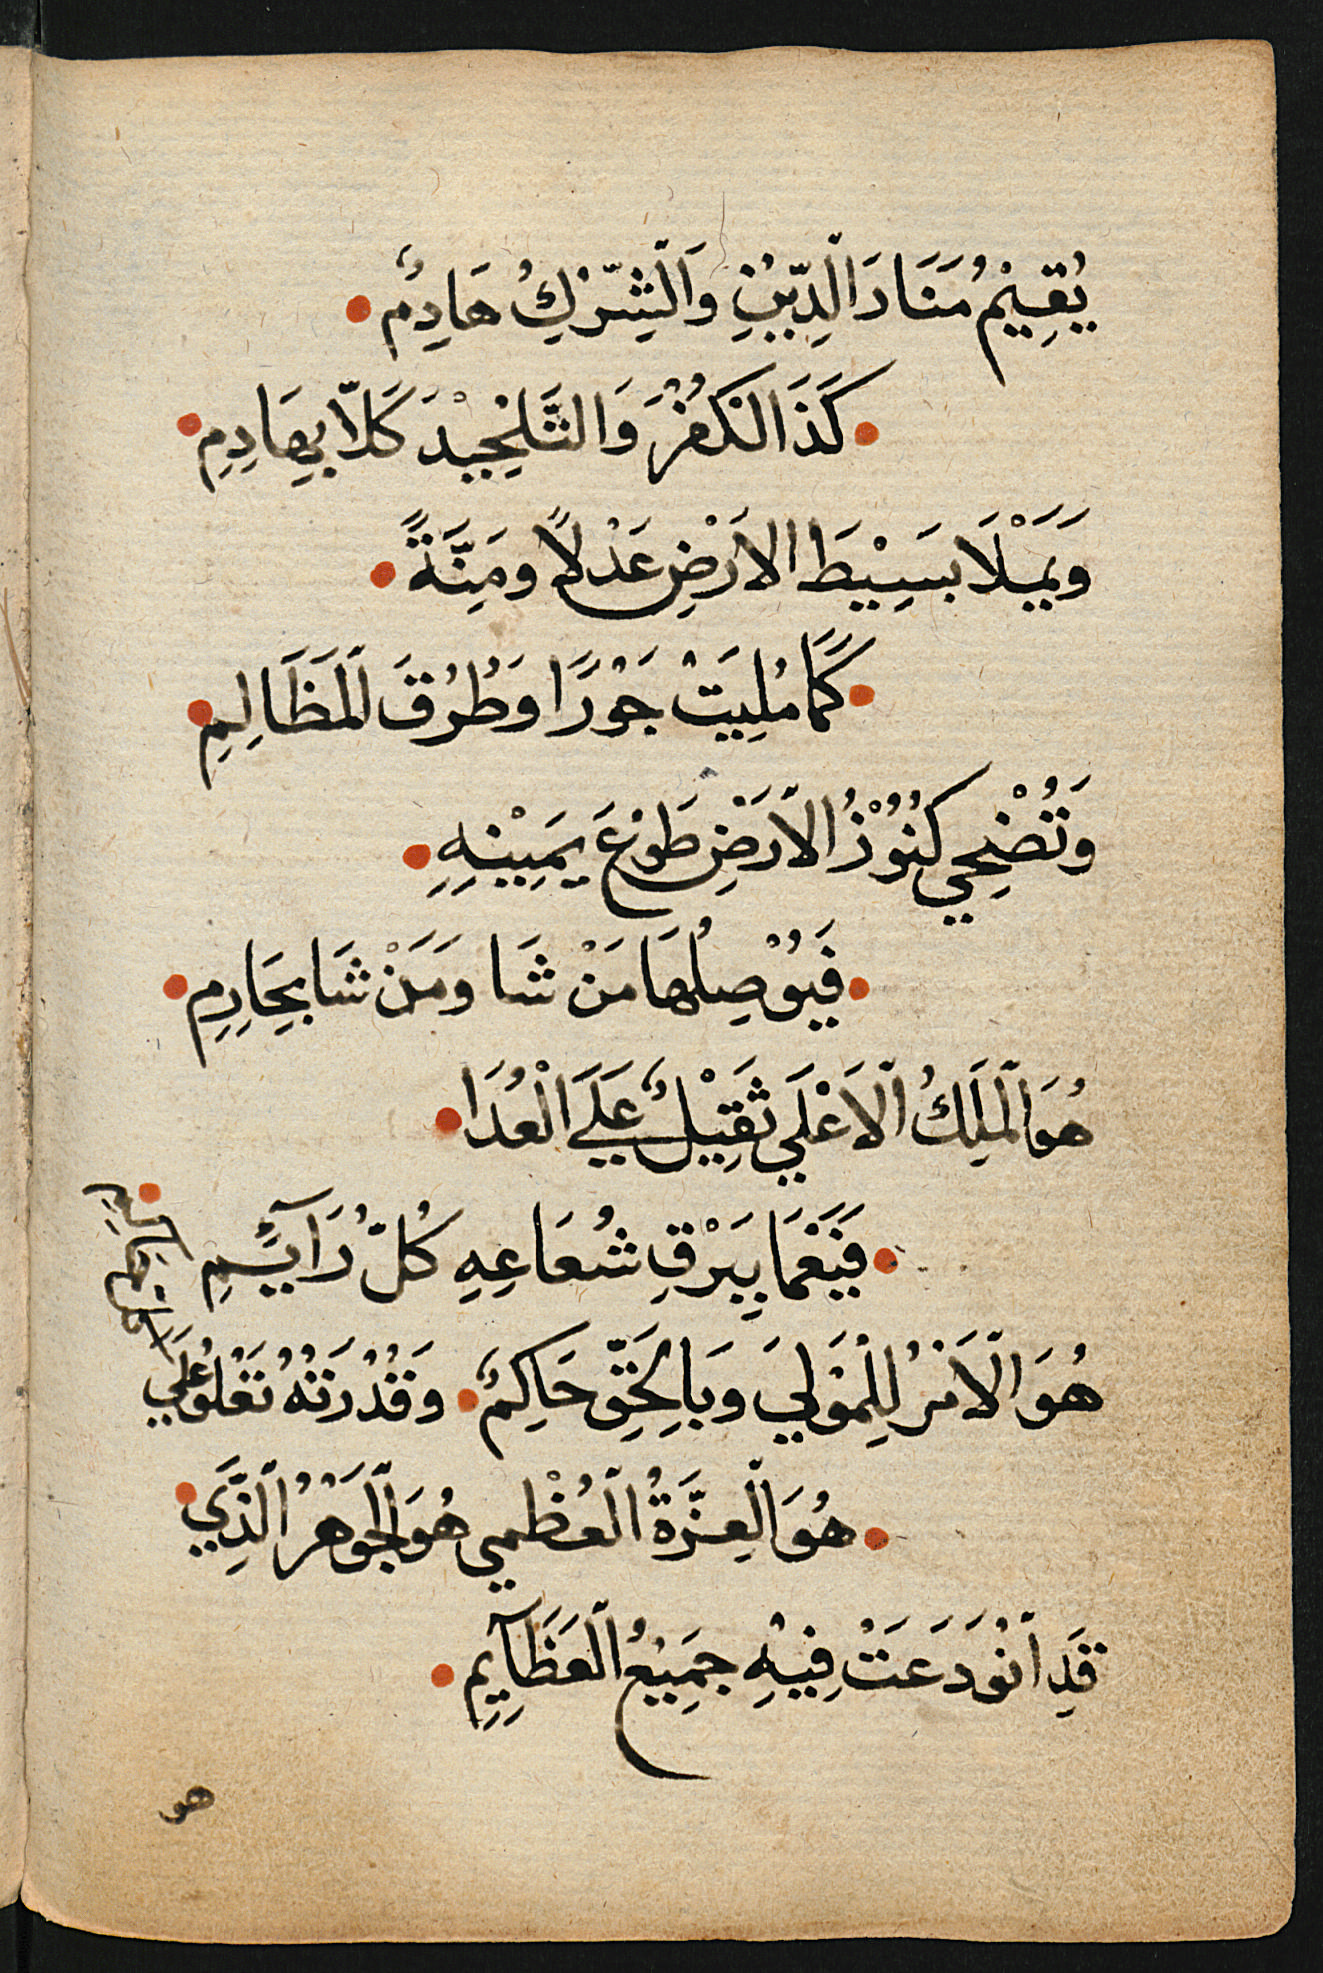 يُقِيْمُ مَنَارَ الدِّيْنِ وَالشِّرْكُ هَادِمٌ
كَذَا الكُفْرَ وَالتَّلْحِيْدَ كَلّا بِهَادِمِ
وَيَمْلَا بَسِيْطَ الاَرْضِ عَدْلاً ومِنَّةً
كَمَا مُلِيَتْ جَوْرًا وَطُرْقَ المَظَالِمِ
وَتُضْحِي كُنُوْزُ الاَرْضِ طَوْعَ يَمِيْنِهِ
فَيُوْصِلُهَا مَنْ شَا ومَنْ شَا بِحَارِمِ
هُوَ المَلِكُ الاَعْلَي ثَقِيْلٌ عَلَي الْعُدَا
فَيَغْمَا بِبَرْقِ شُعَاعِهِ كُلُّ رَآيِمِ
هُوَ الاَمْرُ لِلْمَوْلَي وَبِالحَقِّ حَاكِمٌ وَقُدْرَتُهُ تَعْلُو عَلَي
هُوَ العِزَّةُ العُظْمي هُوَ الجَوْهَرُ الَّذِي
قَدِ اُوْدَعَتْ فِيْهِ جَمِيْعُ العَظَآيِمِ
هو